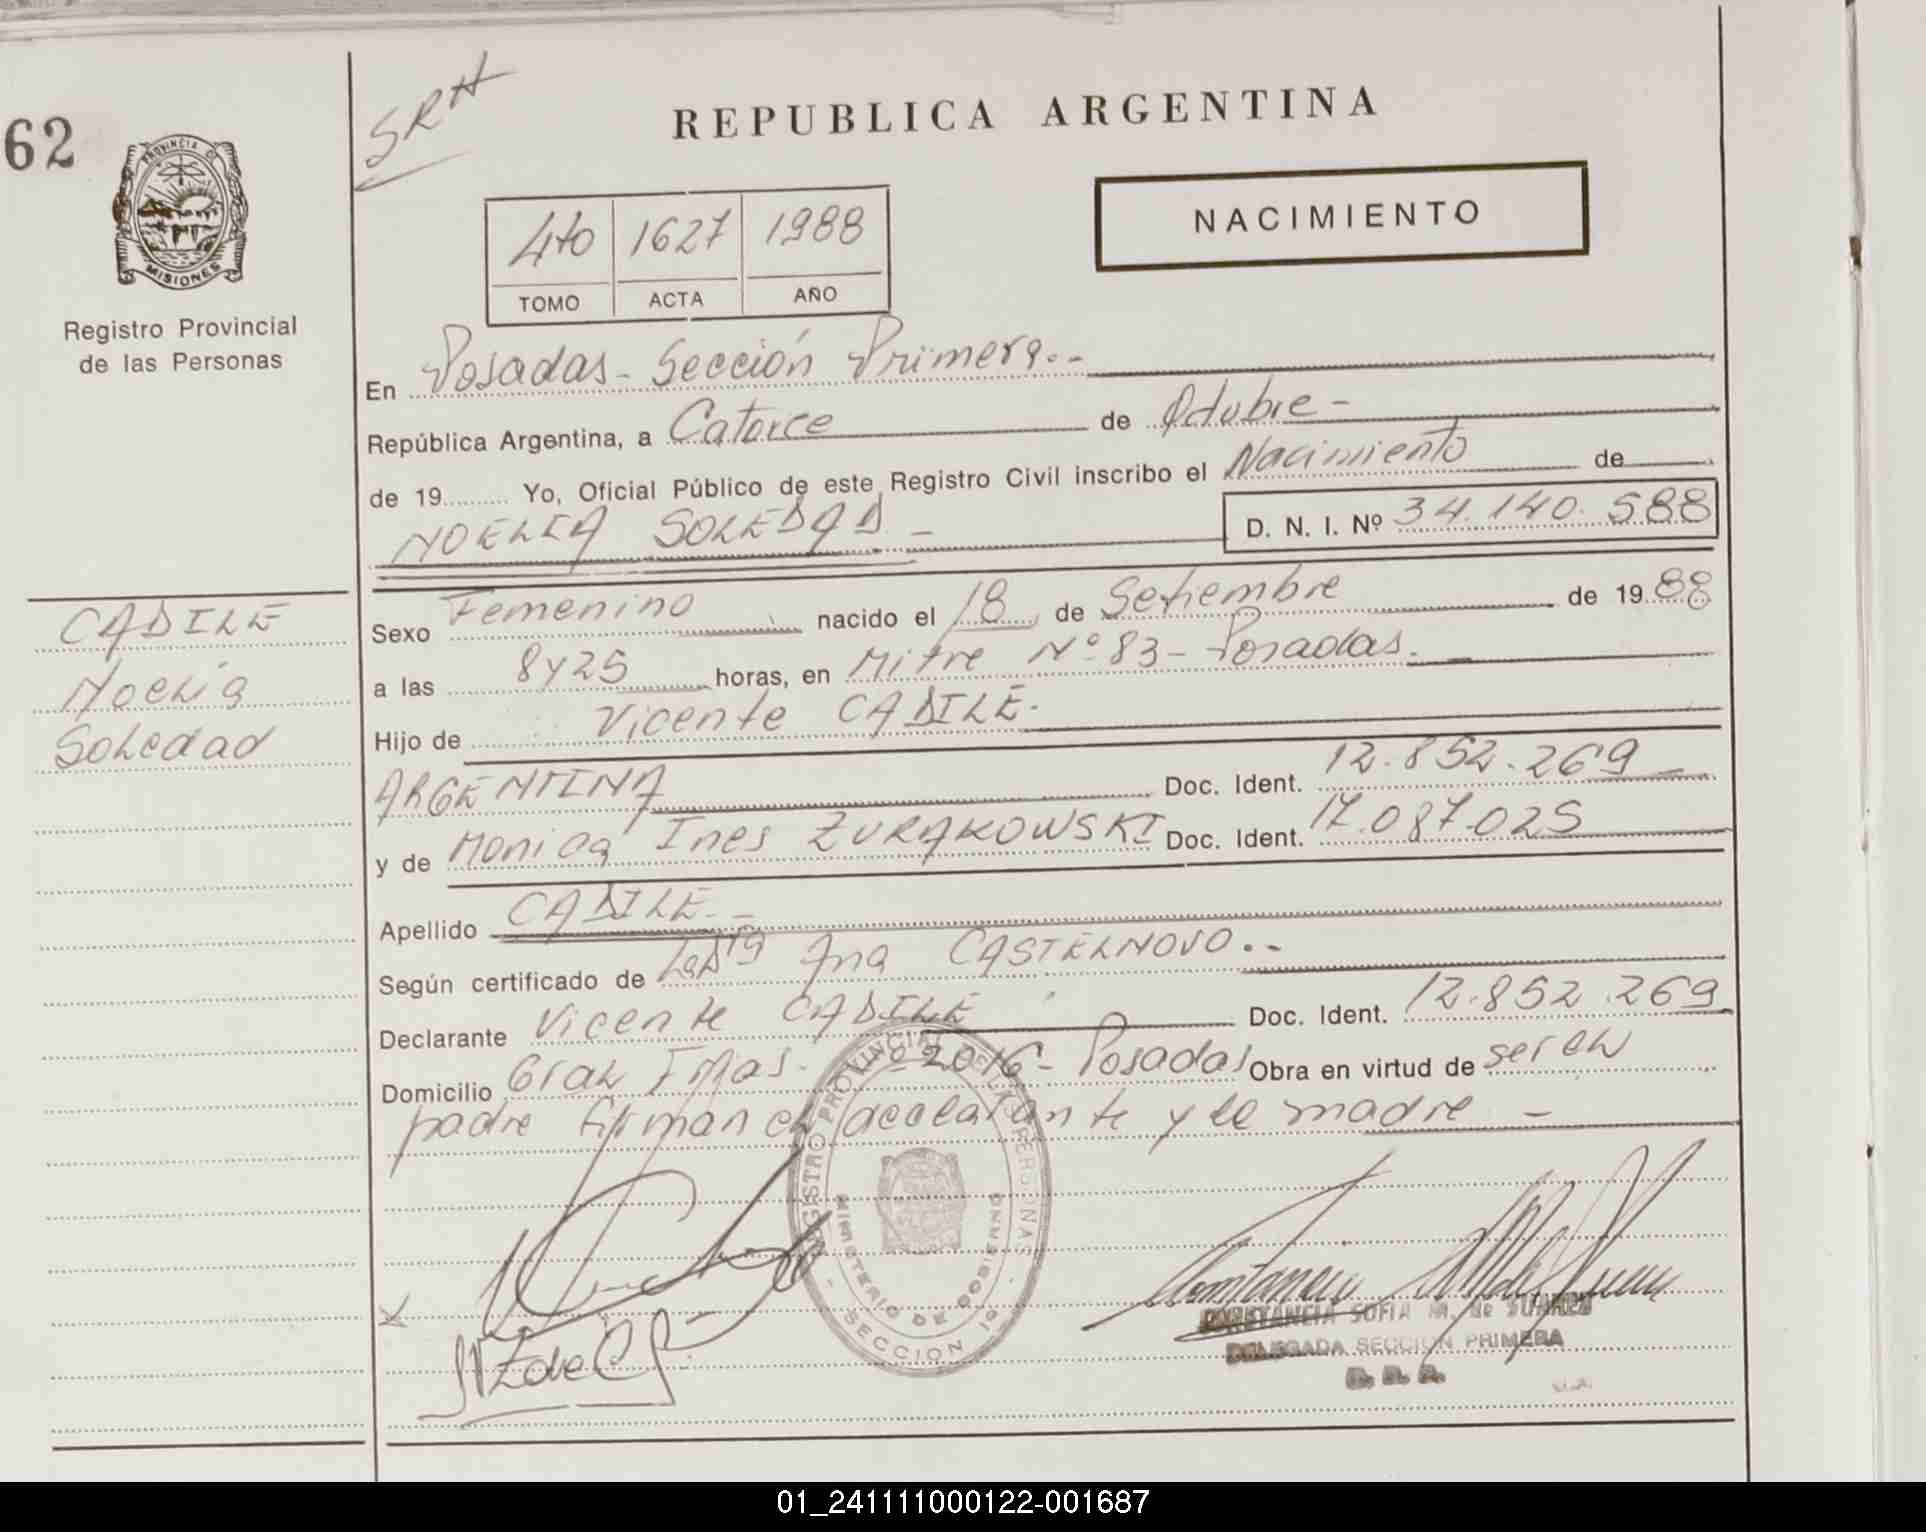 62
SRH
REPUBLICA ARGENTINA
PROVINCIA DE
MISIONES
Registro Provincial
de las Personas
4to 1627 1988
TOMO ACTA AÑO
NACIMIENTO
En Posadas - Sección Primera.-
República Argentina, a Catorce de Octubre -
de 19 Yo, Oficial Público de este Registro Civil inscribo el Nacimiento de
NOELIA SOLEDAD - D. N. I. Nº 34.140.588
CADILE
Noelia
Soledad
Sexo Femenino nacido el 18 de Setiembre de 1988
a las 8y25 horas, en Mitre Nº 83 - Posadas.-
Hijo de Vicente CADILE.-
ARGENTINA Doc. Ident. 12.852.269 -
y de Monica Ines ZURAKOWSKI Doc. Ident. 17.087.025
Apellido CADILE.-
Según certificado de Ana CASTELNOVO.-
Declarante Vicente CADILE Doc. Ident. 12.852.269
Domicilio Gral Frias. Nº 2016 - Posadas Obra en virtud de ser el
padre firman el declarante y la madre -
REGISTRO PROVINCIAL DE LAS PERSONAS
MINISTERIO DE GOBIERNO
- SECCION 1ª -
CONSTANCIA SOFIA M. de SUAREZ
DELEGADA SECCION PRIMERA
01_241111000122-001687